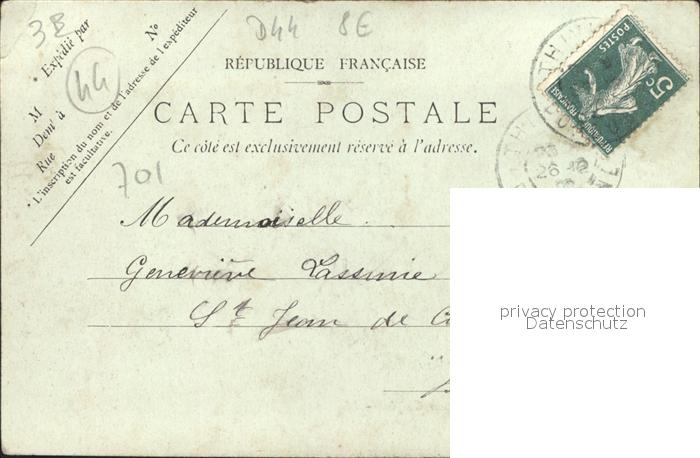 3B
D44 8E
44
701
Nº
Expédié par
M
Demt à
Rue
L'inscription du nom et de l'adresse de l'expéditeur
est facultative.
RÉPUBLIQUE FRANÇAISE
CARTE POSTALE
Ce côté est exclusivement réservé à l'adresse.
5c
POSTES
REPUBLIQUE FRANÇAISE
Mademoiselle
Geneviève
St Jean de
privacy protection
Datenschutz